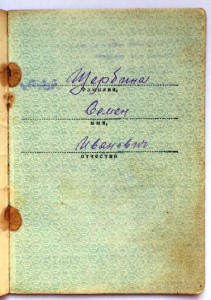 Щербина
фамилия,
Семен
имя,
Иванович
отчество